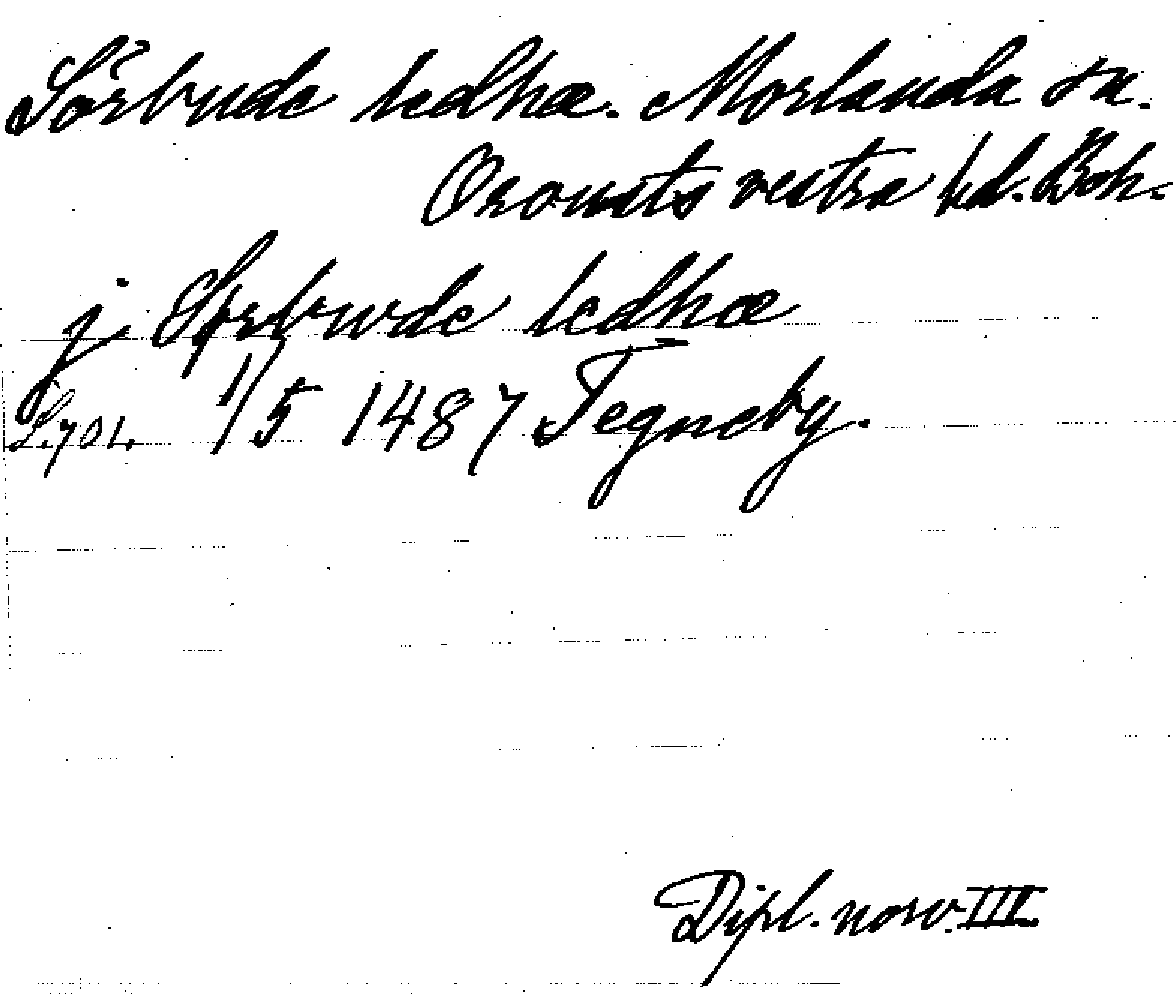 Sörbude ledhæ. Morlanda sn.
Orousts vestra hd. Boh.
j Sørbwde ledhæ
S. 701. 1/5 1487 Tegneby.
Dipl. norv. III.